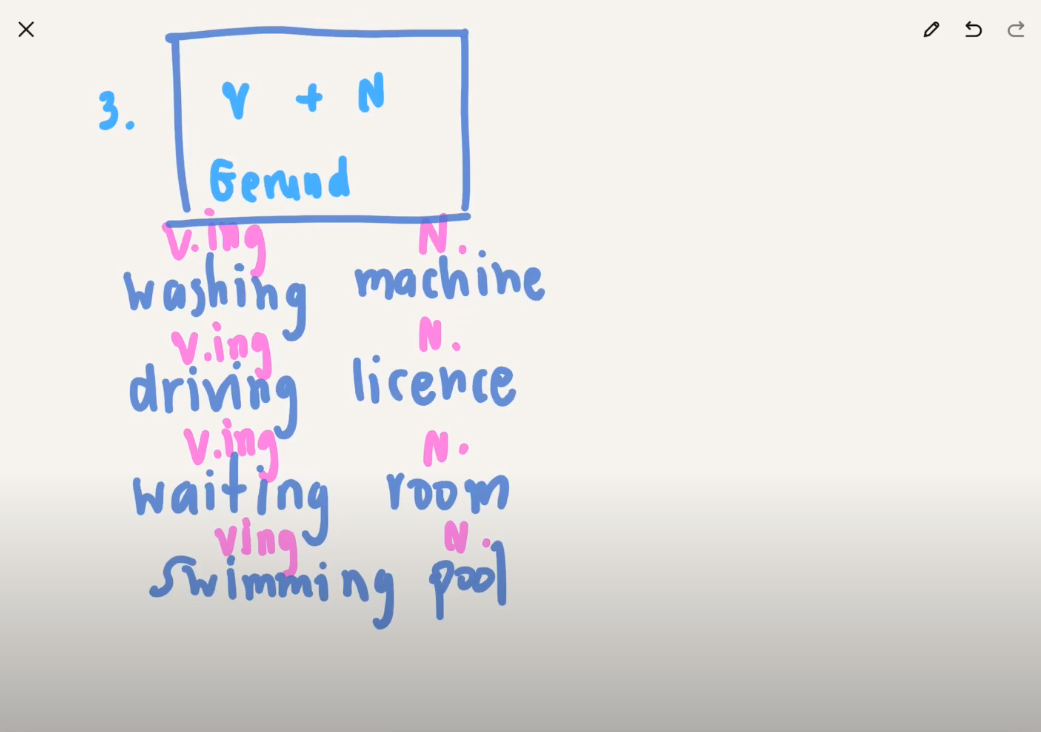 3. V + N
Gerund
v.ing N.
washing machine
v.ing N.
driving licence
v.ing N.
waiting room
ving N.
swimming pool